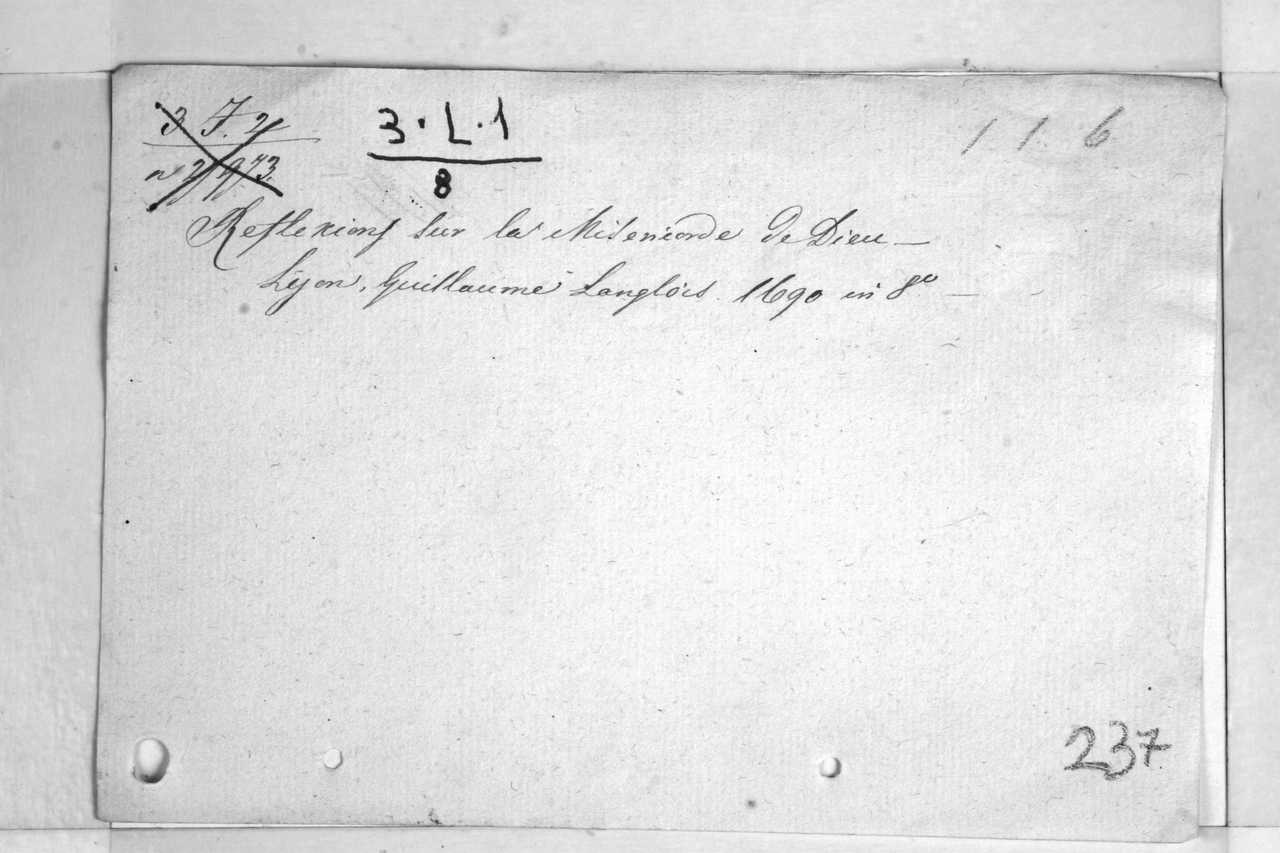 3 F. 2
3·L·1
8
1. 1. 6
Reflexions sur la Misericorde de Dieu —
Lyon, Guillaume Langlois. 1690 in 8º —
237